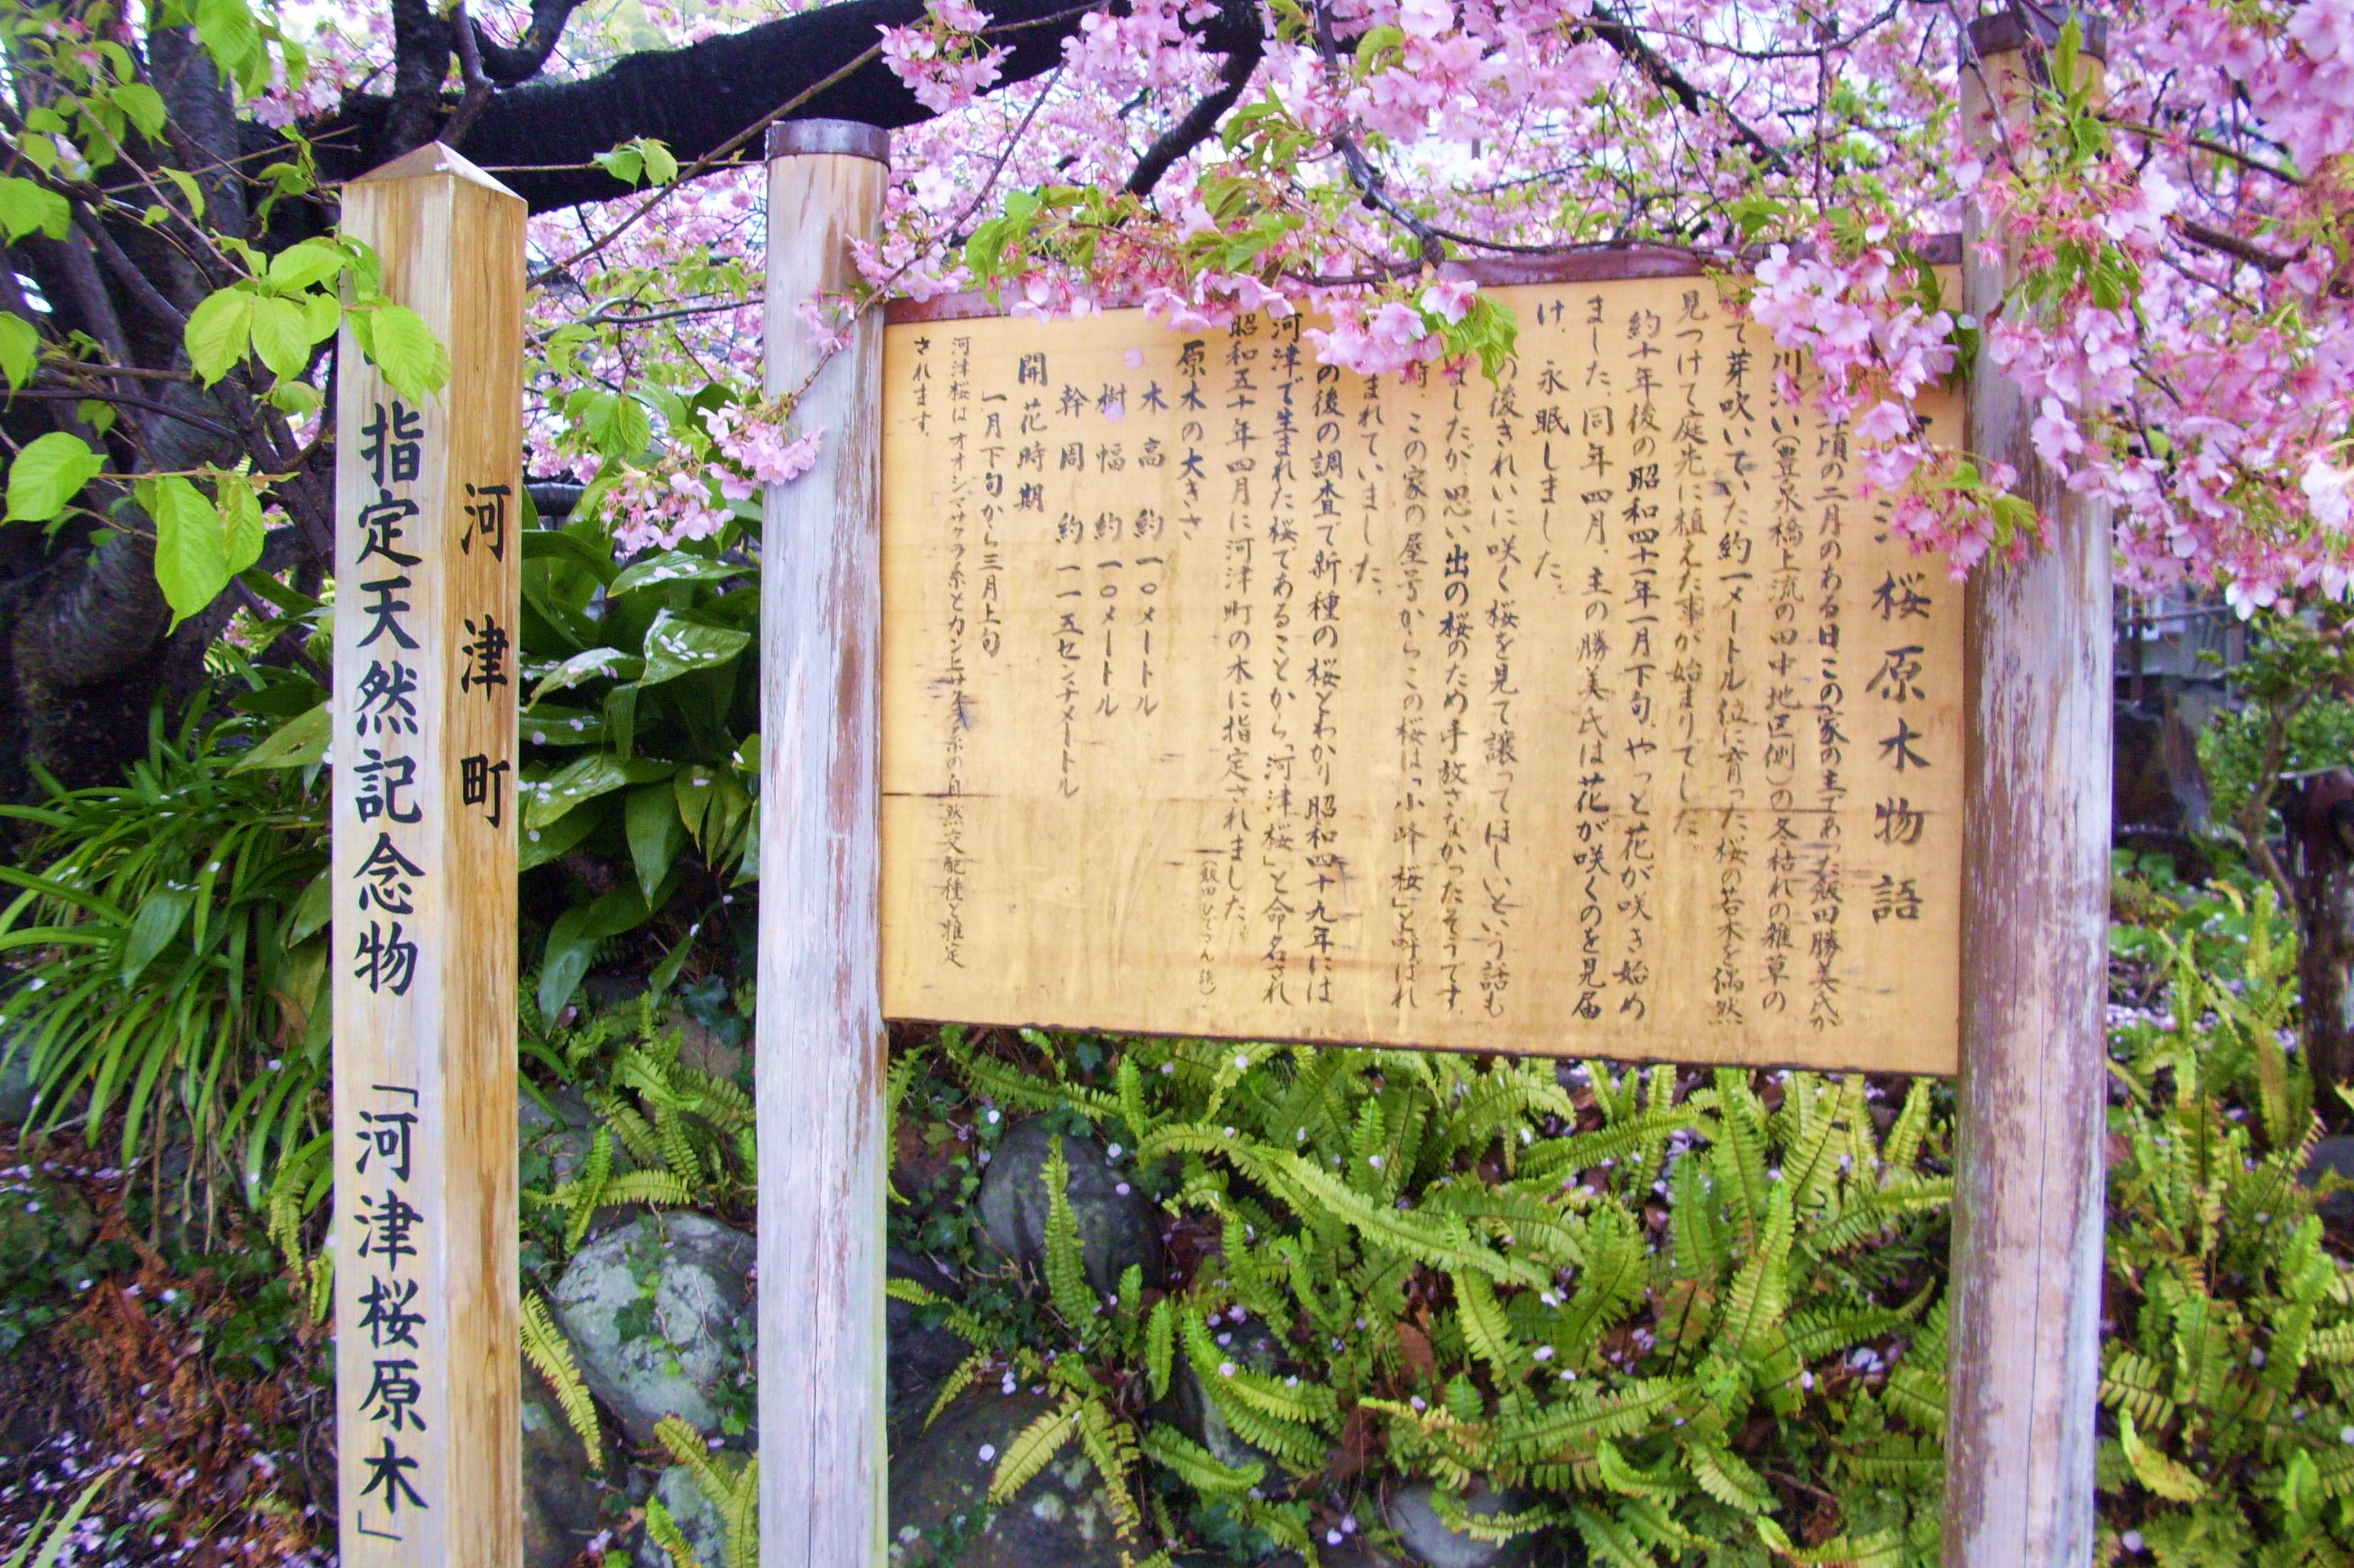 桜原木物語
頃の二月のある日この家の主であった飯田勝美氏が
川沿い(豊泉橋上流の田中地区側)の冬枯れの雑草の
て芽吹いていた約一メートル位に育った桜の若木を偶然
見つけて庭先に植えた事が始まりでした。
約十年後の昭和四十一年一月下旬、やっと花が咲き始め
ました。同年四月、主の勝美氏は花が咲くのを見届
け、永眠しました。
の後きれいに咲く桜を見て譲ってほしいという話も
ましたが思い出の桜のため手放さなかったそうです。
時、この家の屋号からこの桜は「小峰桜」と呼ばれ
まれていました。
の後の調査で新種の桜とわかり昭和四十九年には
河津で生まれた桜であることから「河津桜」と命名され
昭和五十年四月に河津町の木に指定されました。
(飯田ひでさん談)
原木の大きさ
木高 約一〇メートル
樹幅 約一〇メートル
幹周 約一一五センチメートル
開花時期
一月下旬から三月上旬
河津桜はオオシマザクラ系とカンヒザクラ系の自然交配種と推定
されます。
河津町
指定天然記念物 「河津桜原木」